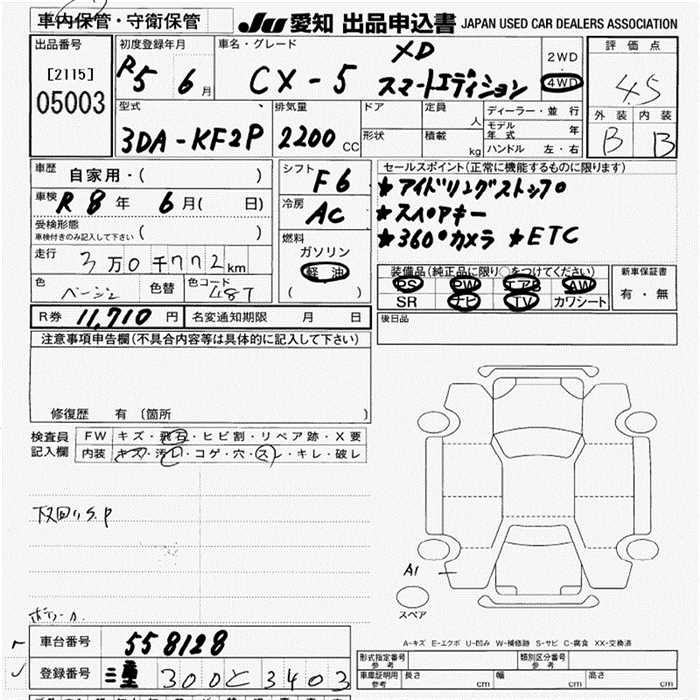 車内保管・守衛保管
JU 愛知 出品申込書 JAPAN USED CAR DEALERS ASSOCIATION
出品番号
[2115]
05003
初度登録年月
R5 6月
車名・グレード
CX-5
XD
スマートエディション
2WD
4WD
評価点
4.5
外装 内装
B B
型式
3DA-KF2P
排気量
2200 CC
ドア
形状
定員 人
積載 kg
ディーラー・並行
モデル年式 年
ハンドル 左・右
車歴
自家用・( )
車検 R8年 6月( 日)
受検形態
車検付きのみ記入して下さい ( )
走行 3万0千772km
色 ベージュ 色替 色コード 48T
シフト F6
冷房 AC
燃料
ガソリン
軽油
( )
セールスポイント(正常に機能するものに限ります)
★アイドリングストップ
★スペアキー
★360°カメラ ★ETC
装備品(純正品に限り○をつけてください)
PS PW エアB AW
SR ナビ TV カワシート
新車保証書
有・無
R券 11,710円 名変通知期限 月 日
後日品
注意事項申告欄(不具合内容等は具体的に記入して下さい)
修復歴 有 (箇所 )
検査員記入欄
FW キズ・飛石・ヒビ割・リペア跡・X要
内装 キズ・汚レ・コゲ・穴・スレ・キレ・破レ
下回りS.P
A1
スペア
A-キズ E-エクボ U-凹み W-補修跡 S-サビ C-腐食 XX-交換済
車台番号 558128
登録番号 三重 300 と 3403
形式指定番号 参考
類別区分番号 参考
車庫証明用 参考 長さ cm 幅 cm 高さ cm